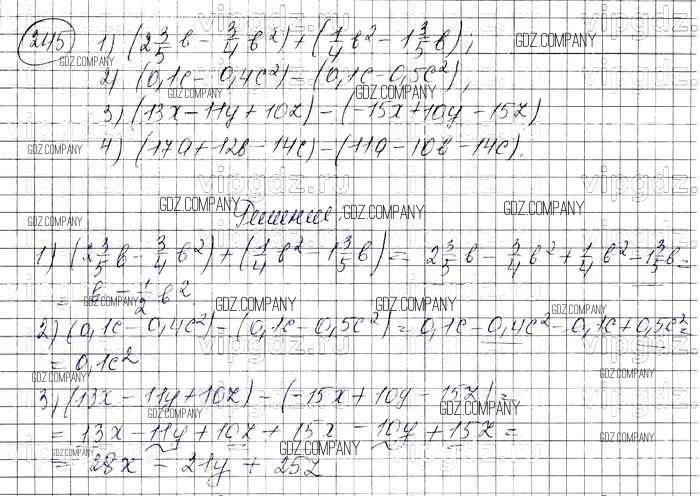 245
1) (2 3/5 b - 3/4 b²) + (1/4 b² - 1 3/5 b);
2) (0,1c - 0,4c²) - (0,1c - 0,5c²);
3) (13x - 11y + 10z) - (-15x + 10y - 15z)
4) (17a + 12b - 14c) - (11a - 10b - 14c).
Решение.
1) (2 3/5 b - 3/4 b²) + (1/4 b² - 1 3/5 b) = 2 3/5 b - 3/4 b² + 1/4 b² - 1 3/5 b =
= b - 1/2 b².
2) (0,1c - 0,4c²) - (0,1c - 0,5c²) = 0,1c - 0,4c² - 0,1c + 0,5c² =
= 0,1c²
3) (13x - 11y + 10z) - (-15x + 10y - 15z) =
= 13x - 11y + 10z + 15x - 10y + 15z =
= 28x - 21y + 25z
GDZ.COMPANY
vipgdz.ru